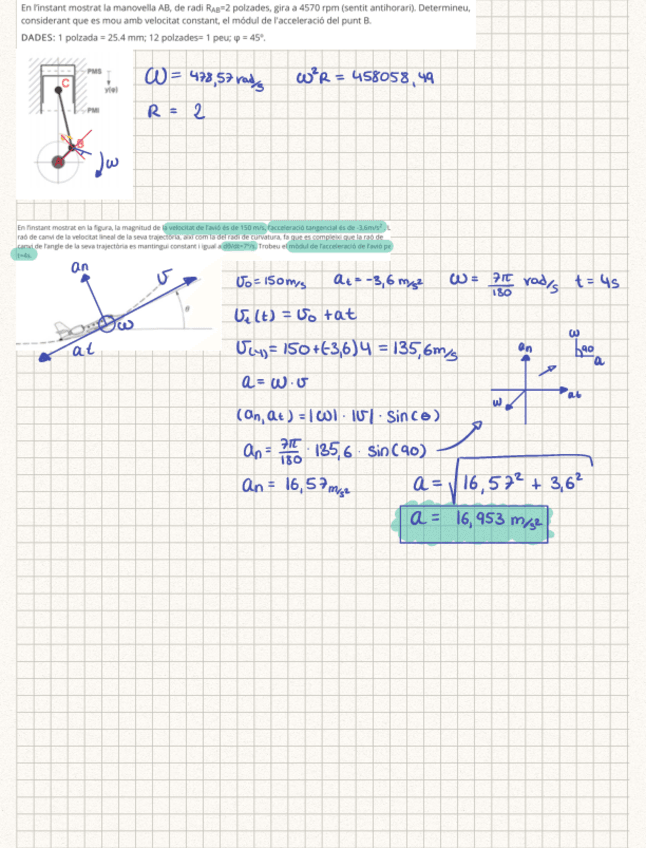 En l'instant mostrat la manovella AB, de radi RAB=2 polzades, gira a 4570 rpm (sentit antihorari). Determineu,
considerant que es mou amb velocitat constant, el mòdul de l'acceleració del punt B.
DADES: 1 polzada = 25.4 mm; 12 polzades= 1 peu; φ = 45º.
ω = 478,57 rad/s ω²R = 458058,49
R = 2
PMS
C
y(φ)
PMI
B
A
ω
En l'instant mostrat en la figura, la magnitud de la velocitat de l'avió és de 150 m/s, l'acceleració tangencial és de -3,6m/s². L
raó de canvi de la velocitat lineal de la seva trajectòria, així com la del radi de curvatura, fa que es compleixi que la raó de
canvi de l'angle de la seva trajectòria es mantingui constant i igual a dθ/dt=7º/s. Trobeu el mòdul de l'acceleració de l'avió pe
t=4s.
an
v
θ
ω
at
v₀ = 150 m/s at = -3,6 m/s² ω = 7π/180 rad/s t = 4s
vt(t) = v₀ + at
v(4) = 150+(-3,6)4 = 135,6 m/s
a = ω · v
(an, at) = |ω| · |v| · sin(θ)
an = 7π/180 · 135,6 · sin(90)
an = 16,57 m/s²
an
at
ω
ω
90
a
a = √16,57² + 3,6²
a = 16,953 m/s²